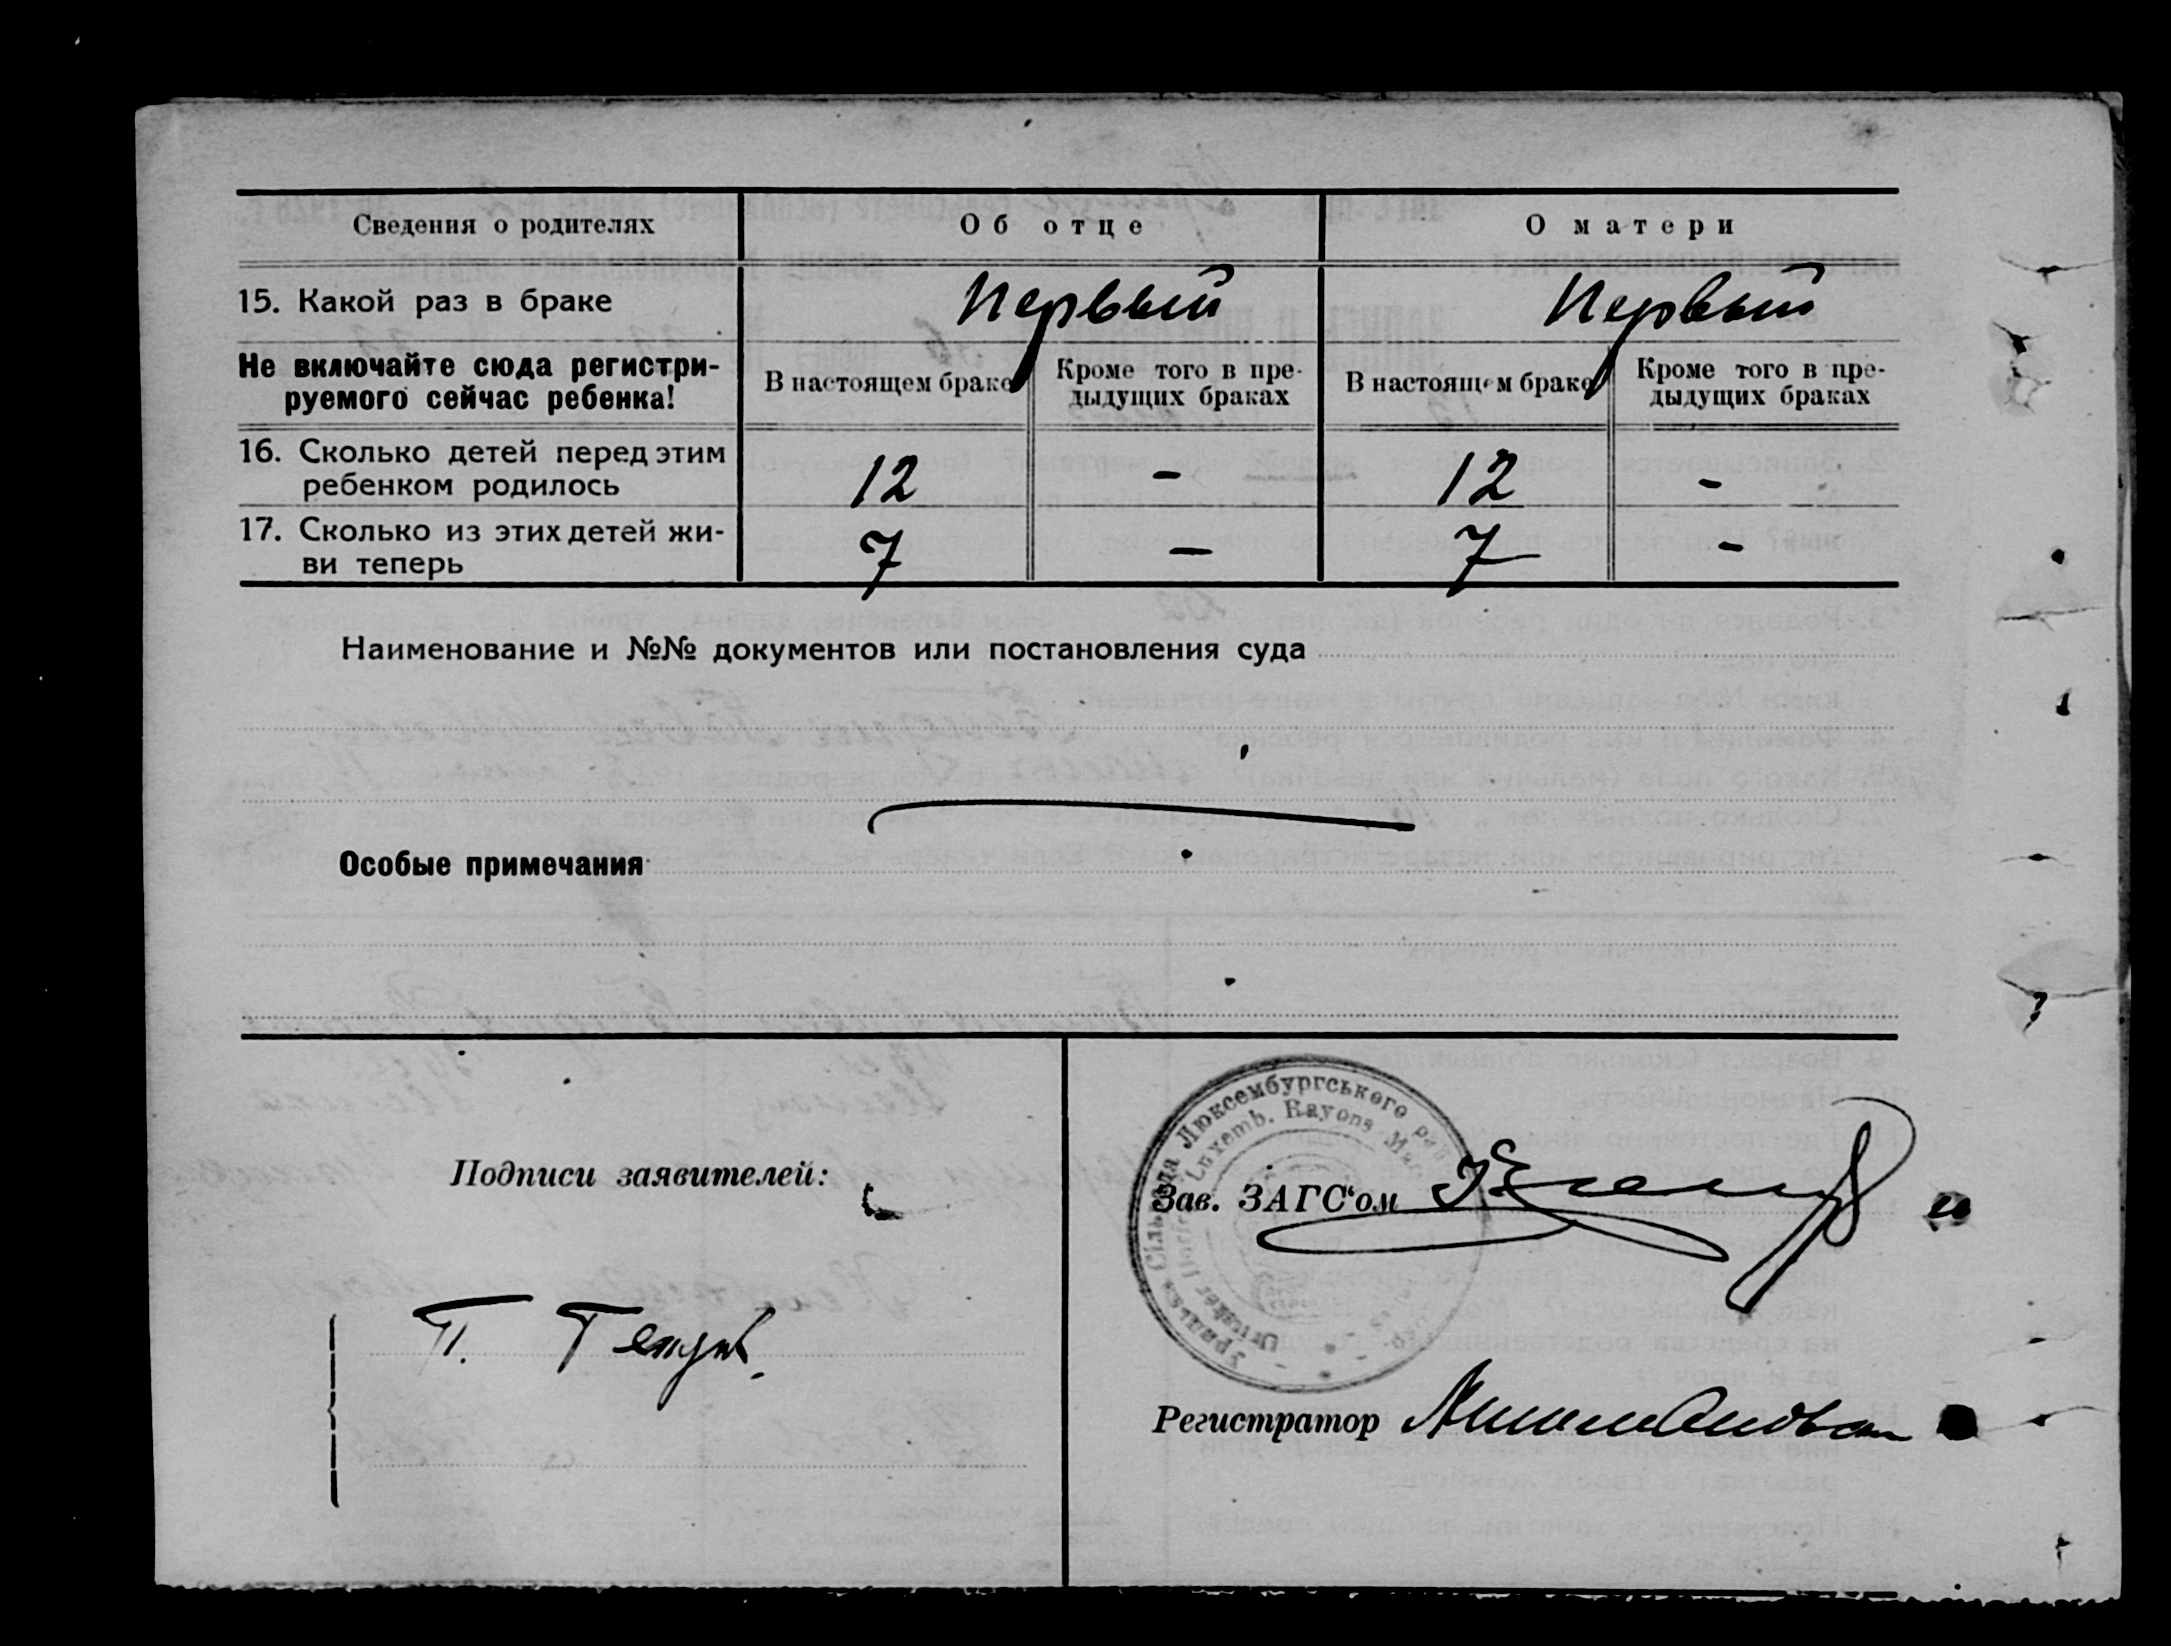 Сведения о родителях Об отце О матери
15. Какой раз в браке Первый Первый
Не включайте сюда регистри-
руемого сейчас ребенка!
В настоящем браке
Кроме того в пре-
дыдущих браках
В настоящем браке
Кроме того в пре-
дыдущих браках
16. Сколько детей перед этим
ребенком родилось 12 - 12 -
17. Сколько из этих детей жи-
ви теперь 7 - 7 -
Наименование и №№ документов или постановления суда
Особые примечания
Подписи заявителей:
Зав. ЗАГС'ом
Люксембургського
Luxemb. Rayons
Регистратор